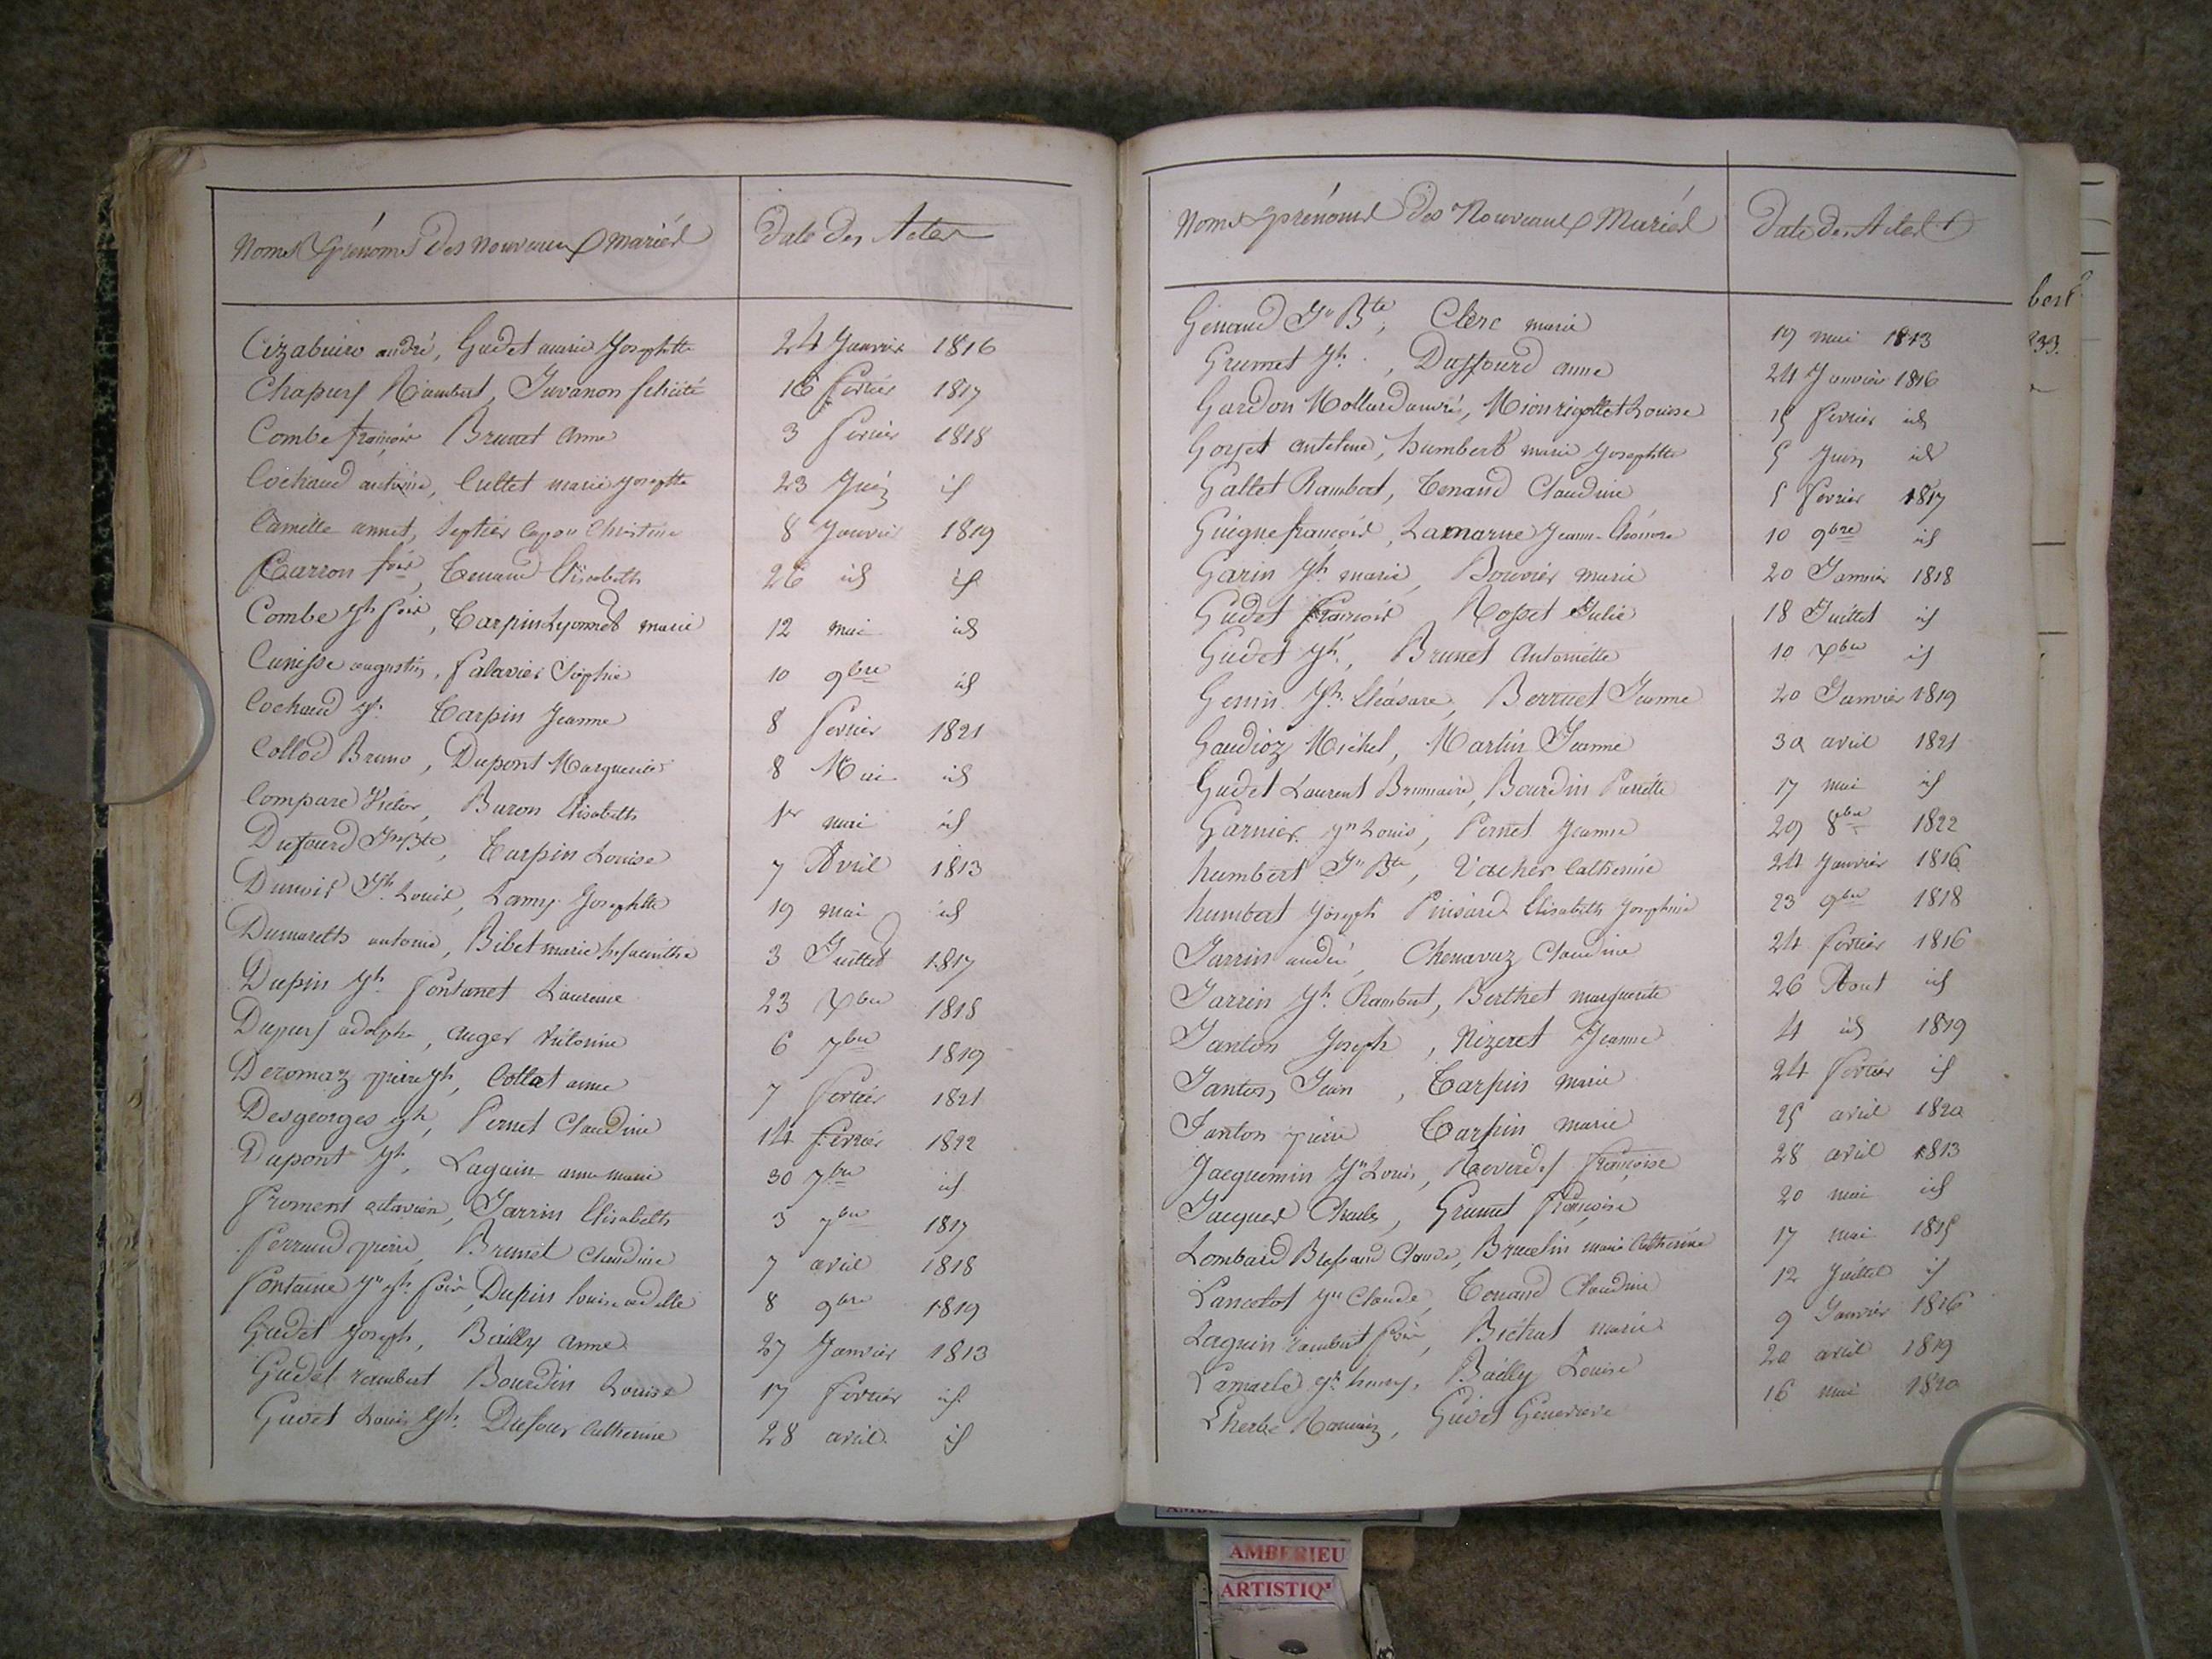 Noms & prénoms des nouveaux mariés Date des Actes
Cizabuiro andré, Gudet marie Josephtte 24 Janvier 1816
Chapuis Rambert, Juvanon felicité 16 fevrier 1817
Combe françois Brunet Anne 3 fevrier 1818
Cochaud antoine, Cultet marie Josephtte 23 Juin id
Camille annet, Septier Capon Christine 8 Janvier 1819
Carron fois, Tenand Elisabeth 26 id id
Combe Jh fois, Tarpin Lyonnet marie 12 mai id
Cunisse augustin, falavier Sophie 10 9bre id
Cochaud Jh Tarpin Jeanne 8 fevrier 1821
Collod Bruno, Dupont Marguerite 8 Mai id
Compare Victor, Buron Elisabeth 1er mai id
Dufourd Jn Bte, Tarpin Louise 7 Avril 1813
Dunoir Jh Louis, Lamy Josephtte 19 mai id
Dumareth antoine, Bibet marie hyacinthe 3 Juillet 1817
Dupin Jh fontanet Laurence 23 Xbre 1818
Dupuis adolphe, auger Victorine 6 7bre 1819
Deromaz pierre Jh, Collet anne 7 fevrier 1821
Desgeorges Jh, Pernet Claudine 14 fevrier 1822
Dupont Jh, Laguin anne marie 30 7bre id
froment octavien, Jarrin Elisabeth 3 7bre 1817
ferrand pierre, Brunet Claudine 7 avril 1818
fontaine Jn Jh fois, Dupin Louise adelle 8 9bre 1819
Gudet Joseph, Bailly Anne 27 Janvier 1813
Gudet rambert Bourdin Louise 17 fevrier id
Gudet Louis Jh Dufour Catherine 28 avril id
Noms & prénoms des Nouveaux Mariés Date des Actes
Genaud Jn Bte, Clerc marie 19 mai 1813
Grumet Jh, Duffourd anne 24 Janvier 1816
Gardon Mollard andré, Mionrigottet Louise 15 fevrier id
Gorjet antelme, humbert marie Josephtte 5 Juin id
Gallet Rambert, Tenand Claudine 5 fevrier 1817
Guigne françois, Lamarne Jeanne Eléonore 10 9bre id
Garin Jh marie, Bouvier marie 20 Janvier 1818
Gudet françois Rosset Julie 18 Juillet id
Gudet Jh, Brunet Antoinette 10 Xbre id
Genin Jh Eléasare, Berruet Jeanne 20 Janvier 1819
Gaudioz Michel, Martin Jeanne 30 avril 1821
Gudet Laurent Brumaire, Bourdin Pierrette 17 mai id
Garnier Jn Louis, Pernet Jeanne 29 8bre 1822
humbert Jn Bte, Vacher Catherine 24 Janvier 1816
humbert Joseph Puisard Elisabeth Josephine 23 9bre 1818
Jarrin andré, Chenavaz Claudine 24 fevrier 1816
Jarrin Jh Rambert, Berthet marguerite 26 Aout id
Janton Joseph, Nizeret Jeanne 4 id 1819
Janton Jean, Tarpin marie 24 fevrier id
Janton pierre Tarpin marie 25 avril 1820
Jacquemin Jn Louis, Reverdy françoise 28 avril 1813
Jacquet Charles, Grumet françoise 20 mai id
Lombard Bressand Claude, Brucelin marie Catherine 17 mai 1815
Lancelot Jn Claude, Tenand Claudine 12 Juillet id
Laguin rambert fois, Bichat marie 9 Janvier 1816
Lamarle Jh henry, Bailly Louise 20 avril 1819
Lherbe Romain, Gudet Genevieve 16 mai 1820
bert
233
AMBERIEU
ARTISTIQ